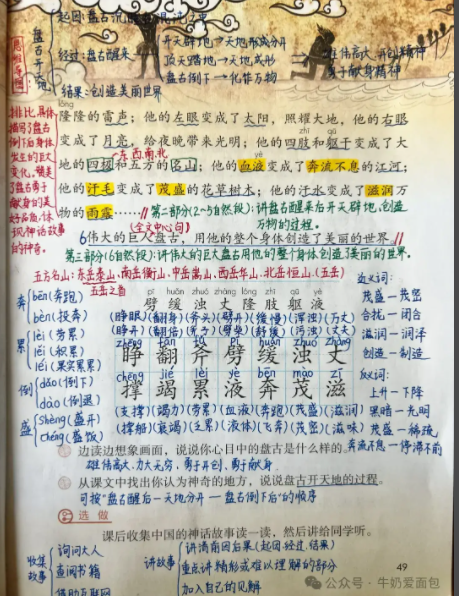 盘古开天地
起因:盘古沉
经过:盘古醒来
开天辟地→天地形成分开
顶天踏地→天地成形
盘古倒下→化作万物
雄伟高大、开创精神
勇于献身精神
结果:创造美丽世界
排比,具体描写了盘古倒下后身体发生的巨大变化。赞美了盘古勇于献身的美好品质,体现神话故事的神奇。
lóng
隆隆的雷声;他的左眼变成了太阳,照耀大地,他的右眼
zhī qū
变成了月亮,给夜晚带来光明;他的四肢和躯干变成了大
东西南北
yè
地的四极和五方的名山;他的血液变成了奔流不息的江河;
他的汗毛变成了茂盛的花草树木;他的汗水变成了滋润万
物的雨露……
第二部分(2~5自然段):讲盘古醒来后开天辟地,创造万物的过程。
(全文中心句)
6伟大的巨人盘古,用他的整个身体创造了美丽的世界。
第三部分(6自然段):讲伟大的巨大盘古用他的整个身体创造了美丽的世界。
五方名山:东岳泰山、南岳衡山、中岳嵩山、西岳华山、北岳恒山(五岳)
五岳之首
奔
bēn(奔跑)
bèn(投奔)
累
lèi(劳累)
lěi(积累)
léi(果实累累)
倒
dǎo(倒下)
dào(倒退)
盛
shèng(盛开)
chéng(盛饭)
pī huǎn zhuó zhàng lóng zhī qū yè
劈 缓 浊 丈 隆 肢 躯 液
(睁眼)(翻身)(斧头)(劈开)(缓慢)(浑浊)(万丈)
zhēng fān fǔ pī huǎn zhuó zhàng
睁 翻 斧 劈 缓 浊 丈
chēng jié lèi yè bēn mào zī
撑 竭 累 液 奔 茂 滋
(支撑)(竭力)(劳累)(血液)(奔跑)(茂盛)(滋润)
近义词:
茂盛—茂密
合拢—闭合
滋润—润泽
创造—制造
反义词:
上升—下降
黑暗—光明
茂盛—稀疏
奔流不息—停滞不前
边读边想象画面,说说你心目中的盘古是什么样的。
雄伟高大、力大无穷、勇于开创、勇于献身。
从课文中找出你认为神奇的地方,说说盘古开天地的过程。
可按"盘古醒后—天地分开—盘古倒下后"的顺序
选做
课后收集中国的神话故事读一读,然后讲给同学听。
收集故事
询问大人
查阅书籍
借助互联网
讲故事
讲清前因后果(起因、经过、结果)
重点讲精彩或难以理解的部分
加入自己的见解
49
公众号·牛奶爱面包